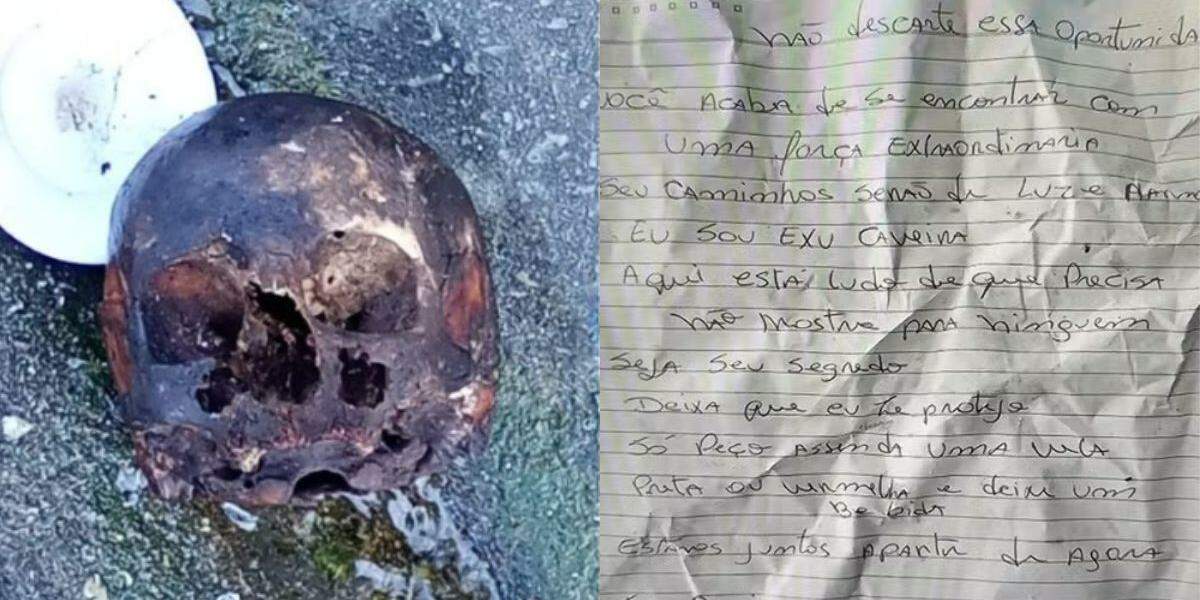 NÃO descarte essa Oportunida
você ACABA de se encontrar com
UMA força EXtraordimaria
Seu CAmimhos SERÃO de LUZ e
EU SOU EXU CAVEIRA
Aqui está tudo de que Precisa
NÃO MOSTRE PARA Ninguem
SeJA Seu Segredo
DEIXA que eu te proteja
SÓ Peço ASSENDA UMA vela
Preta ou vermelha e deixe um
Bebida
Estamos juntos APARtir de AgoRA